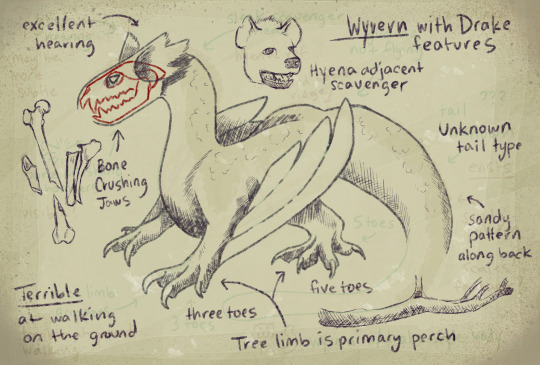 excellent
hearing
Wyvern with Drake
features
Hyena adjacent
scavenger
Bone
Crushing
Jaws
Unknown
tail type
sandy
pattern
along back
five toes
three toes
Terrible
at walking
on the ground
Tree limb is primary perch
tail ???
5 toes
3 toes